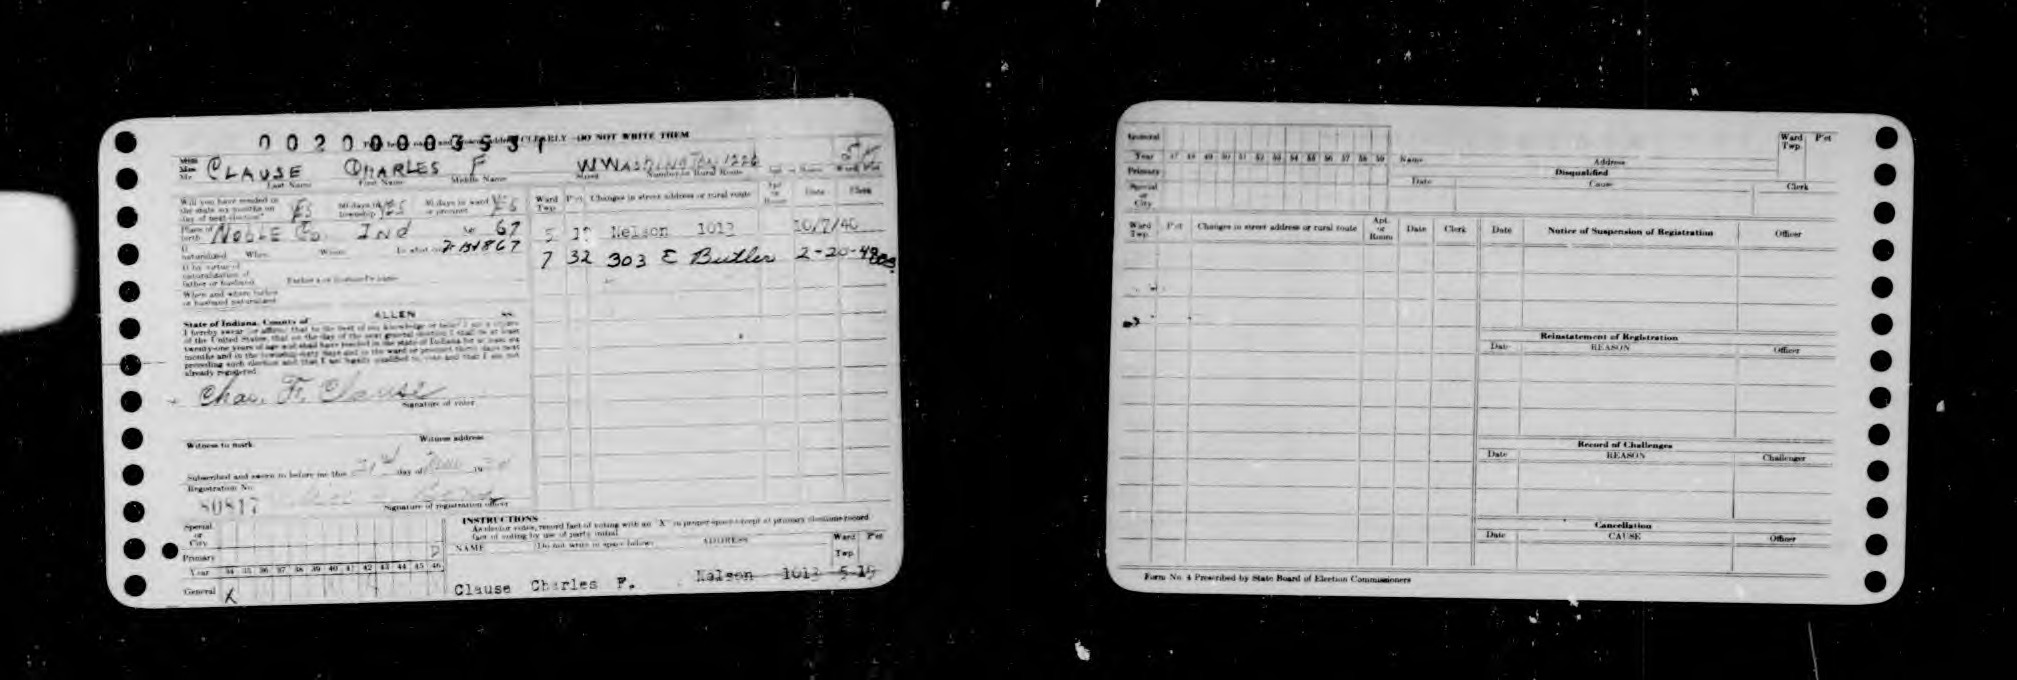 CLEARLY—DO NOT WRITE THEM
CLAUSE CHARLES F W WASHINGTON 1226
Last Name First Name Middle Name Street Number or Rural Route
Will you have resided in
the state six months on
day of next election? YES 60 days in township YES 30 days in ward or precinct YES
Ward Twp. P'ct Changes in street address or rural route Apt. or Room Date Clerk
Place of birth NOBLE Co. IND Age 67
5 Nelson 1013 10/7/40
If naturalized When Where
7 32 303 E Butler 2-20-48
If by virtue of
naturalization of
father or husband Father's or husband's name
When and where father
or husband naturalized
State of Indiana, County of ALLEN ss.
I hereby swear (or affirm) that to the best of my knowledge or belief I am a citizen
of the United States, that on the day of the next general election I shall be at least
twenty-one years of age and shall have resided in the state of Indiana for at least six
months and in the township sixty days and in the ward or precinct thirty days next
preceding such election and that I am legally qualified to vote and that I am not
already registered.
Chas. F. Clause
Signature of voter
Witness to mark Witness address
Subscribed and sworn to before me this day of 19
Registration No.
80817
Signature of registration officer
Special
or
City
Primary D
Year 34 35 36 37 38 39 40 41 42 43 44 45 46
General X
INSTRUCTIONS
As elector votes, record fact of voting with an "X" in proper space except at primary elections record
fact of voting by use of party initial.
NAME (Do not write in space below) ADDRESS Ward Twp. P'ct
Clause Charles F. Nelson 1013 5-19
General
Year 47 48 49 50 51 52 53 54 55 56 57 58 59
Primary
Special
or
City
Name Address Ward Twp. P'ct
Disqualified
Date Cause Clerk
Ward Twp. P'ct Changes in street address or rural route Apt. or Room Date Clerk
Date Notice of Suspension of Registration Officer
Reinstatement of Registration
Date REASON Officer
Record of Challenges
Date REASON Challenger
Cancellation
Date CAUSE Officer
Form No. 4 Prescribed by State Board of Election Commissioners